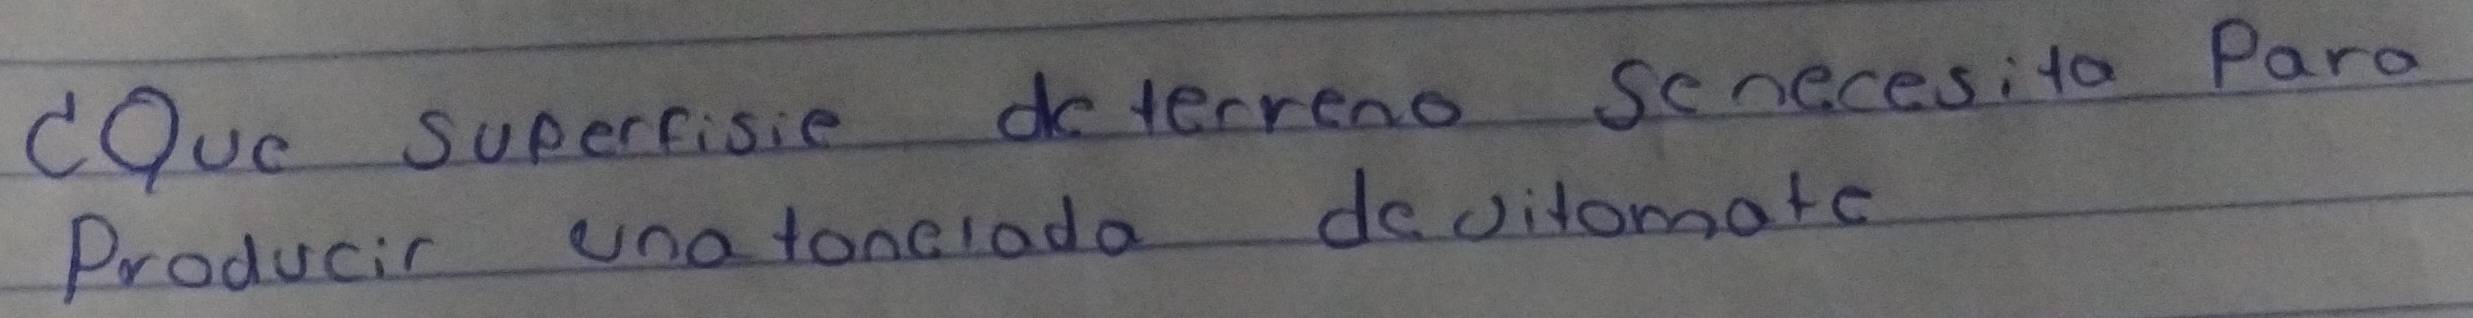 ¿Que superfisie de terreno se necesita Para
Producir una tonelada de jitomate